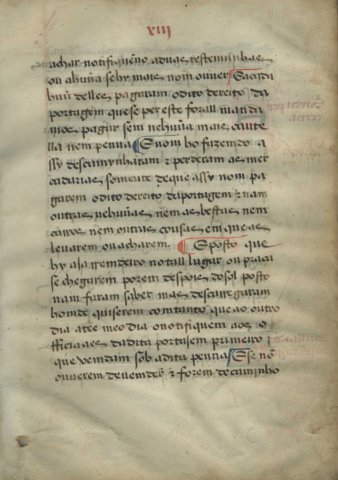 xiii
achar notifiquẽno a duas testemunhas
ou a hũa se hi mais nom ouver Sacada
hũu delles pagaram o dito dereito da
portagem que se per este forall manda
mos pagar sem nehuũa mais caute
lla nem penna E nom ho fazemdo a
ssy descaminharam E perderam as mer
cadarias somente de que assy nom pa
garem o dito dereito da portagem E nam
outras nehuũas nem as bestas nem
carros nem outras cousas em que as
levarem ou acharem E posto que
hy aja remdeiro no tall lugar ou praça
se chegarem porem despois do sol posto
nam faram saber mas descarregaram
homde quiserem comtanto que ao outro
dia atee meo dia o notifiquem aos o
fficiaes da dita portajem primeiro
que vemdam sob a dita penna E se nõ
ouverem de vemder E forem de caminho